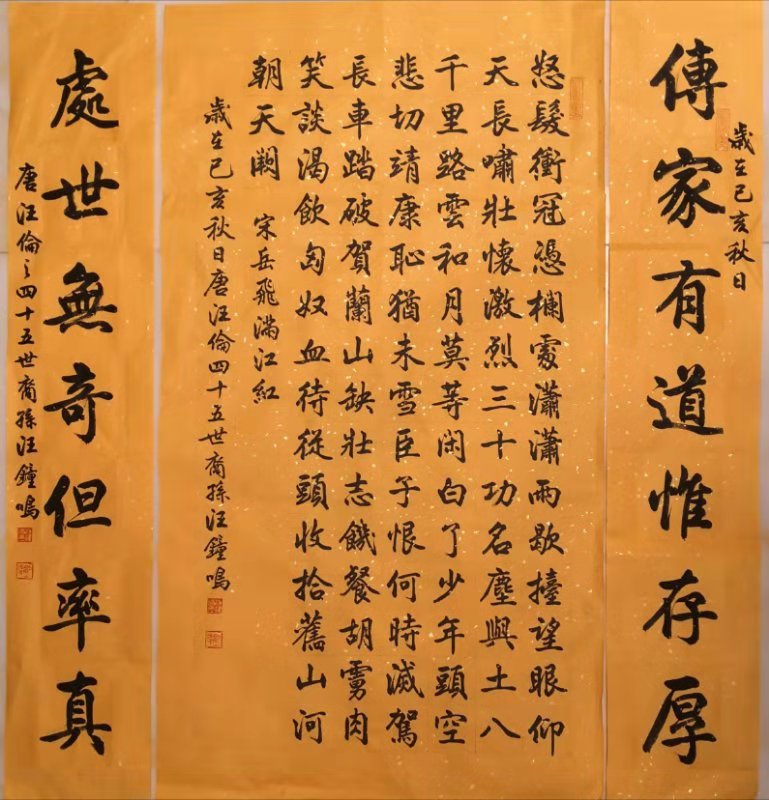 歲在己亥秋日
傳家有道惟存厚
怒髮衝冠憑欄處瀟瀟雨歇擡望眼仰
天長嘯壯懷激烈三十功名塵與土八
千里路雲和月莫等闲白了少年頭空
悲切靖康恥猶未雪臣子恨何時滅駕
長車踏破賀蘭山缺壯志饑餐胡虜肉
笑談渴飲匈奴血待從頭收拾舊山河
朝天闕 宋岳飛滿江紅
歲在己亥秋日唐汪倫四十五世裔孫汪鐘鳴
處世無奇但率真
唐汪倫之四十五世裔孫汪鐘鳴